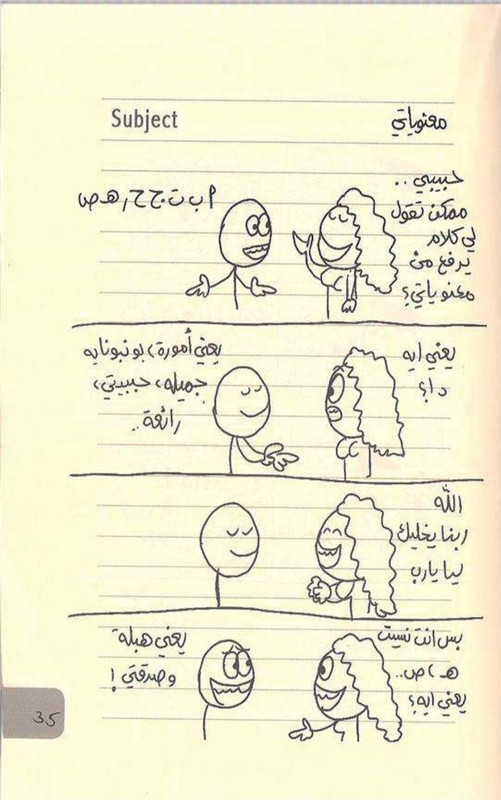 Subject
معنوياتي
حبيبي ..
ممكن تقول
لي كلام
يرفع من
معنوياتي؟
أ ب ت. ج ح ر هـ ص
يعني ايه
دا؟
يعني أمورة، بونبونايه
جميله، حبيبتي،
رائعة..
الله
ربنا يخليك
ليا يارب
بس انت نسيت
هـ، ص..
يعني ايه؟
يعني هبلة
وصدقتي !
35